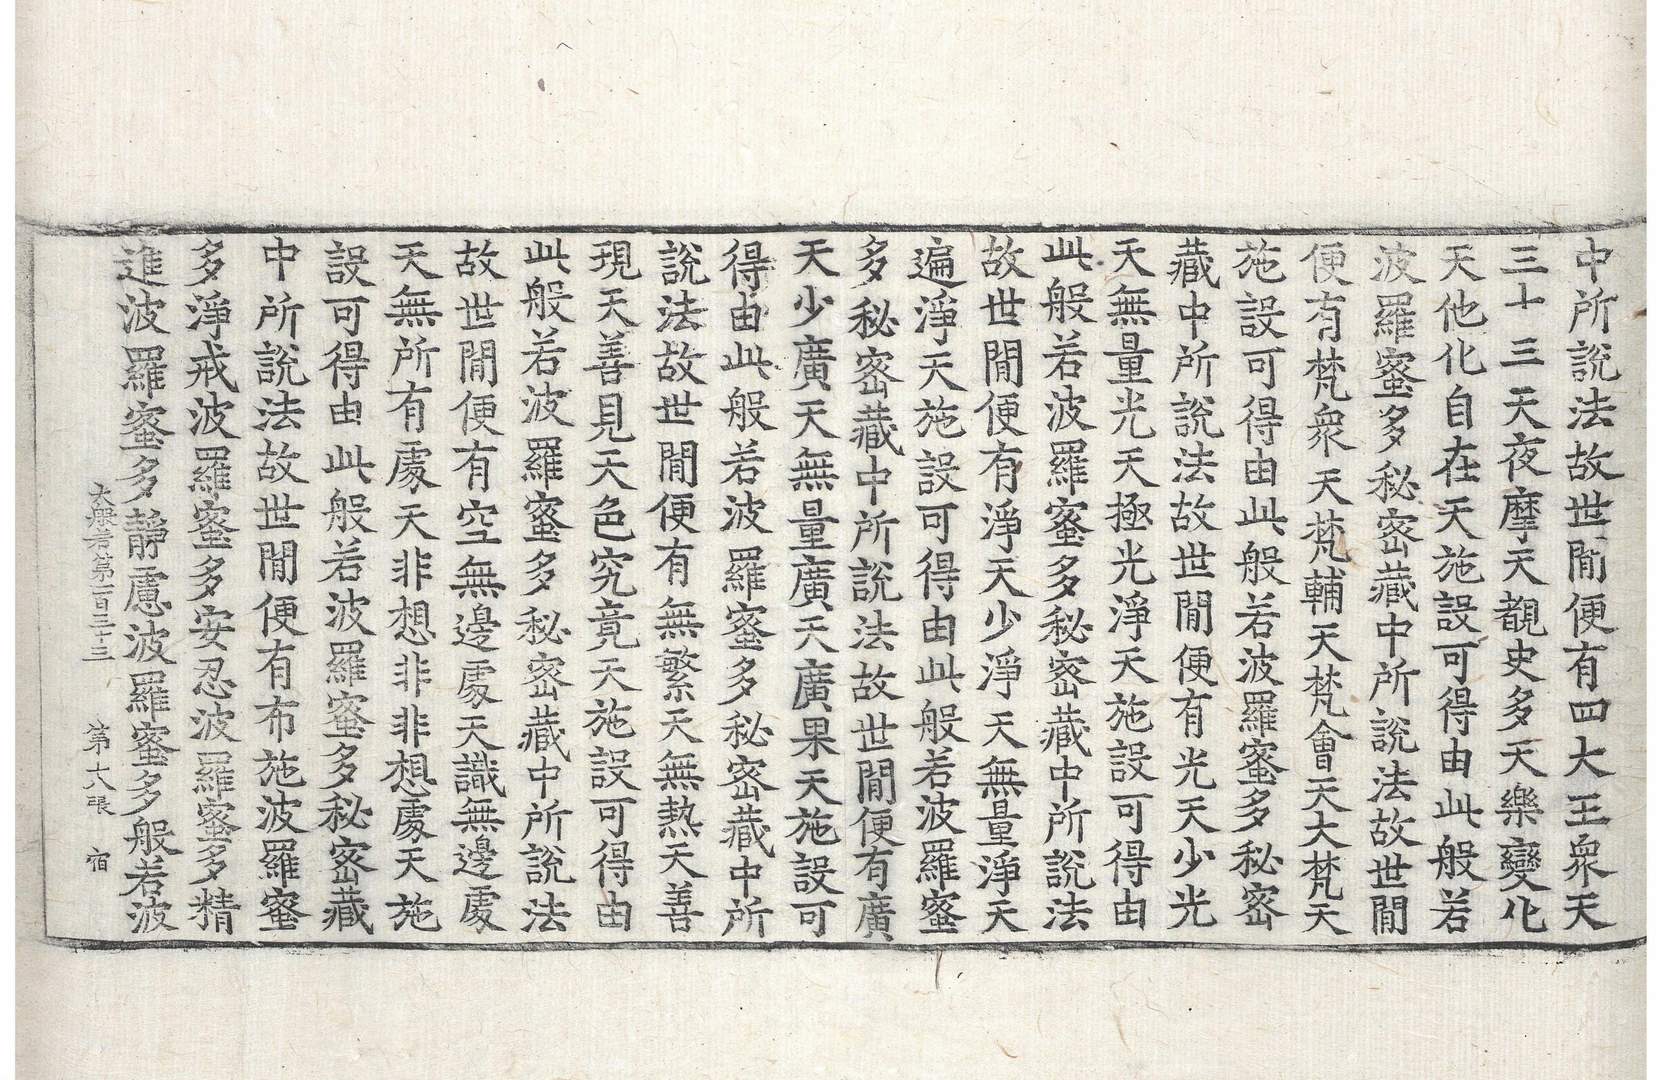 中所說法故世閒便有四大王衆天
三十三天夜摩天覩史多天樂變化
天他化自在天施設可得由此般若
波羅蜜多秘密藏中所說法故世閒
便有梵衆天梵輔天梵會天大梵天
施設可得由此般若波羅蜜多秘密
藏中所說法故世閒便有光天少光
天無量光天極光淨天施設可得由
此般若波羅蜜多秘密藏中所說法
故世閒便有淨天少淨天無量淨天
遍淨天施設可得由此般若波羅蜜
多秘密藏中所說法故世閒便有廣
天少廣天無量廣天廣果天施設可
得由此般若波羅蜜多秘密藏中所
說法故世閒便有無繁天無熱天善
現天善見天色究竟天施設可得由
此般若波羅蜜多秘密藏中所說法
故世閒便有空無邊處天識無邊處
天無所有處天非想非非想處天施
設可得由此般若波羅蜜多秘密藏
中所說法故世閒便有布施波羅蜜
多淨戒波羅蜜多安忍波羅蜜多精
進波羅蜜多靜慮波羅蜜多般若波
大般若第一百三十三 第十六張 宿